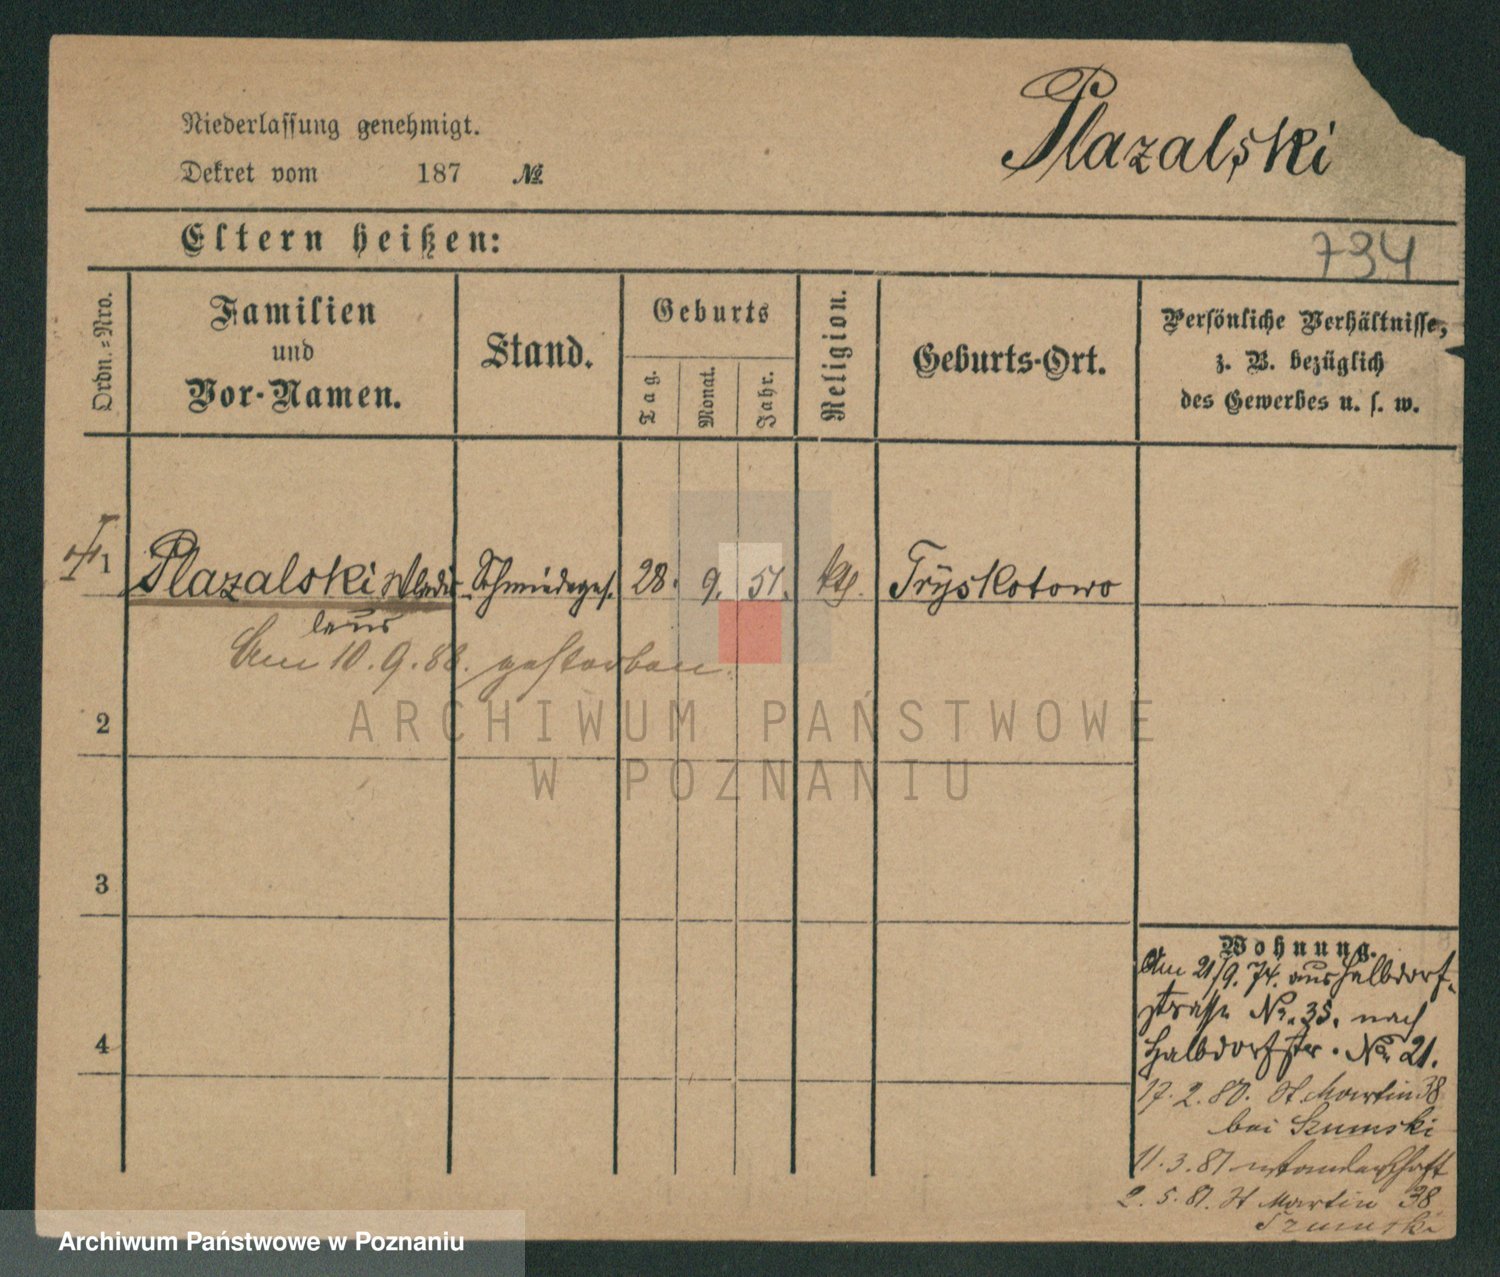 Plazalski
Niederlassung genehmigt.
Dekret vom 187 №
Eltern heißen:
734
Ordn.=Nro.
Familien
und
Vor-Namen.
Stand.
Geburts
Tag.
Monat.
Jahr.
Religion.
Geburts-Ort.
Persönliche Verhältnisse,
z. B. bezüglich
des Gewerbes u. s. w.
1 Plazalski Wladis- Schmiedeges. 28. 9. 51. kth. Tryskotowo
laus
Am 10.9.88. gestorben.
2
3
4
Wohnung.
Am 21/9.74. aus Halbdorf-
strasse No. 35. nach
Halbdorfstr. No 21.
17.2.80. St Martin 38
bei Szumski
11.3.81
2.5.81. St Martin 38
Szumski
ARCHIWUM PAŃSTWOWE
W POZNANIU
Archiwum Państwowe w Poznaniu